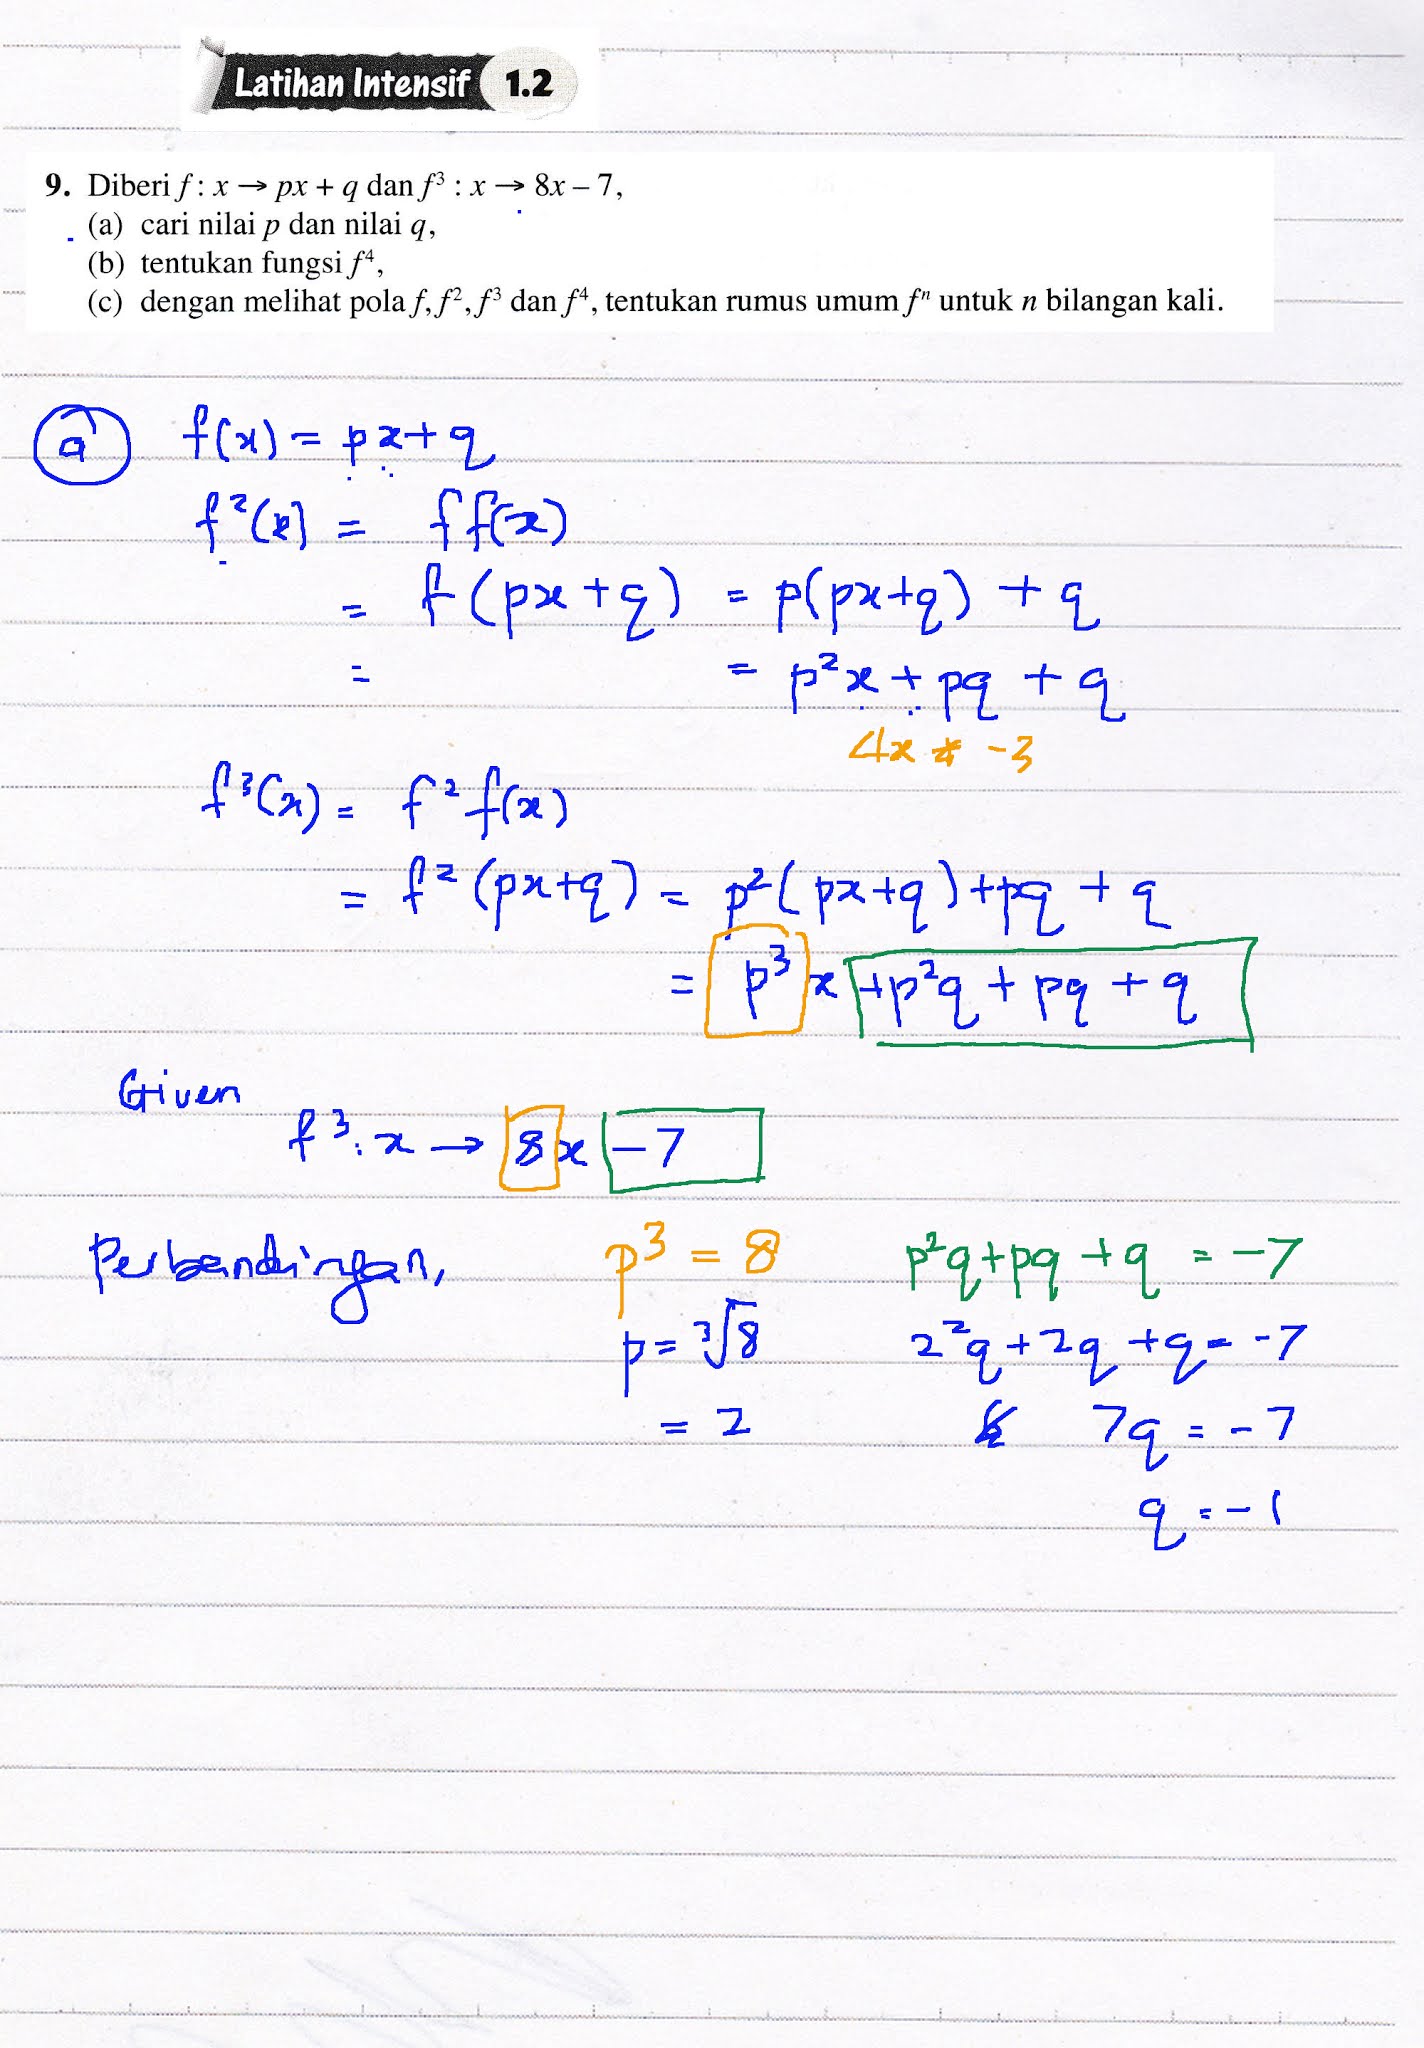 Latihan Intensif 1.2
9. Diberi f : x → px + q dan f³ : x → 8x – 7,
(a) cari nilai p dan nilai q,
(b) tentukan fungsi f⁴,
(c) dengan melihat pola f, f², f³ dan f⁴, tentukan rumus umum fⁿ untuk n bilangan kali.
a f(x) = px + q
f²(x) = ff(x)
= f(px + q) = p(px+q) + q
= = p²x + pq + q
4x -3
f³(x) = f²f(x)
= f²(px+q) = p²(px+q) + pq + q
= p³x + p²q + pq + q
Given
f³: x → 8x – 7
Perbandingan, p³ = 8 p²q + pq + q = -7
p = ³√8 2²q + 2q + q = -7
= 2 7q = -7
q = -1